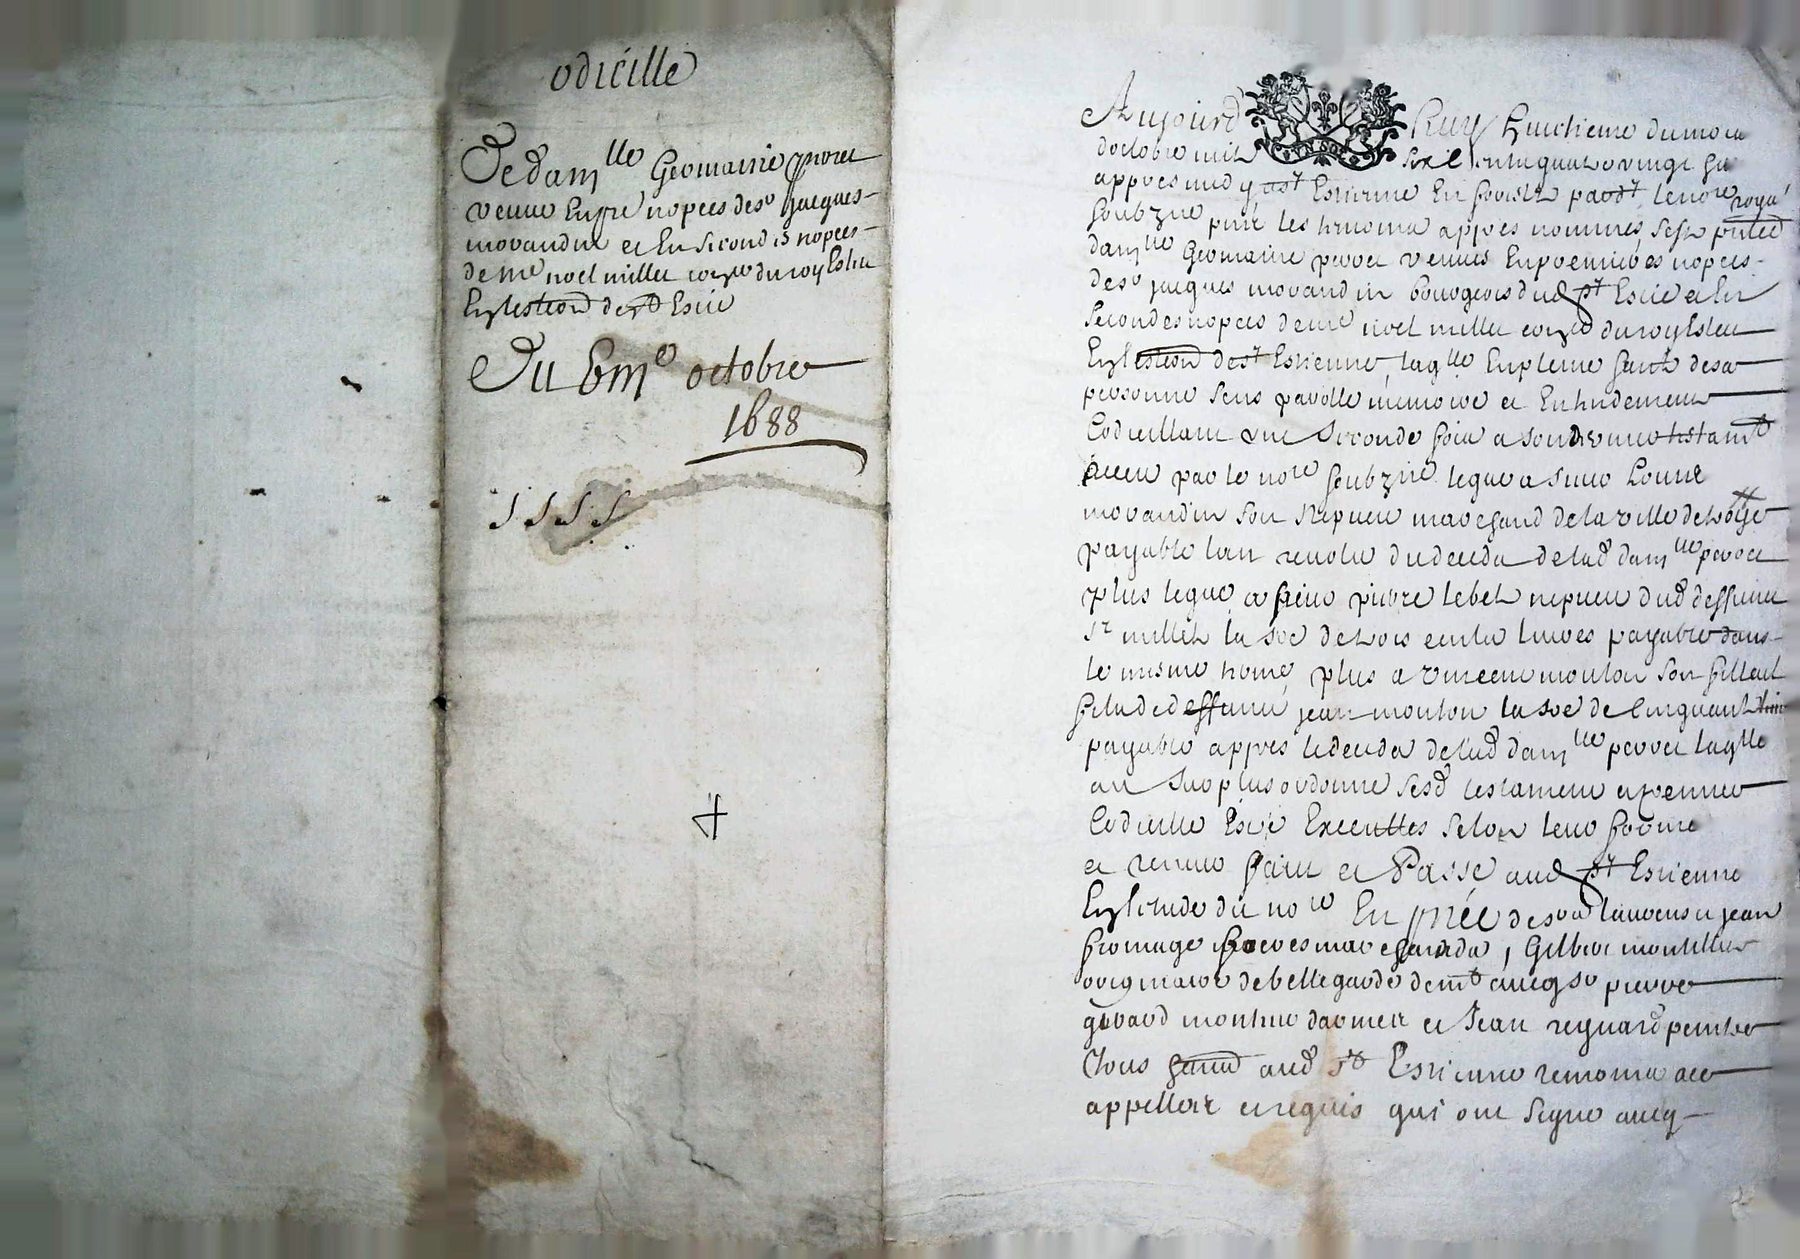 odicille
De dam lle Germaine perret
veuve En pre nopces de sr Jacques
morandin et En secondes nopces
de Me noel millet coner du roy Esleu
En lestion de st Estie
Du 8me octobre
1688
Aujourd huy huictieme du mois
doctobre mil six cent quatre vingt huit
appres midy a st Estienne En forestz pardt le nore royal
soubzne pnt les tesmoins appres nommes sest
dam lle Germaine perret veuve En premieres nopces
de sr jacques morandin bourgeois dud st Estie et En
secondes nopces de me noel millet coner du roy Esleu
En lestion de st Estienne, laqlle En pleine sante de sa
personne sens parolle memoire et Entendement
Codicillant une seconde fois a son dernier testamt
receu par le nore soubzne legue a sieur
morandin son nepveu marchand de la ville de
payable lan revolu du deceds de lad dam lle perret
plus legue a sieur pierre lebel nepveu dud deffunt
sr millet la soe de trois cents livres payable dans
le mesme terme, plus a vincent mouton son filleul
fils de deffunt jean mouton la soe de cinquante liv
payable appres le deceds de lad dam lle perret laqlle
au surplus ordonne sesd testament et premier
Codicille Estre Executtes selon leur forme
et teneur faict et Passé aud st Estienne
En lestude du nore En pnce de srs laurens et jean
fromage freres marchands, Gilbert
originaire de bellegarde demt avecq sr pierre
girard d'armes et Jean reynard peintre
Tous aud st Estienne tesmoins ace
appelles et requis qui ont signe avecq